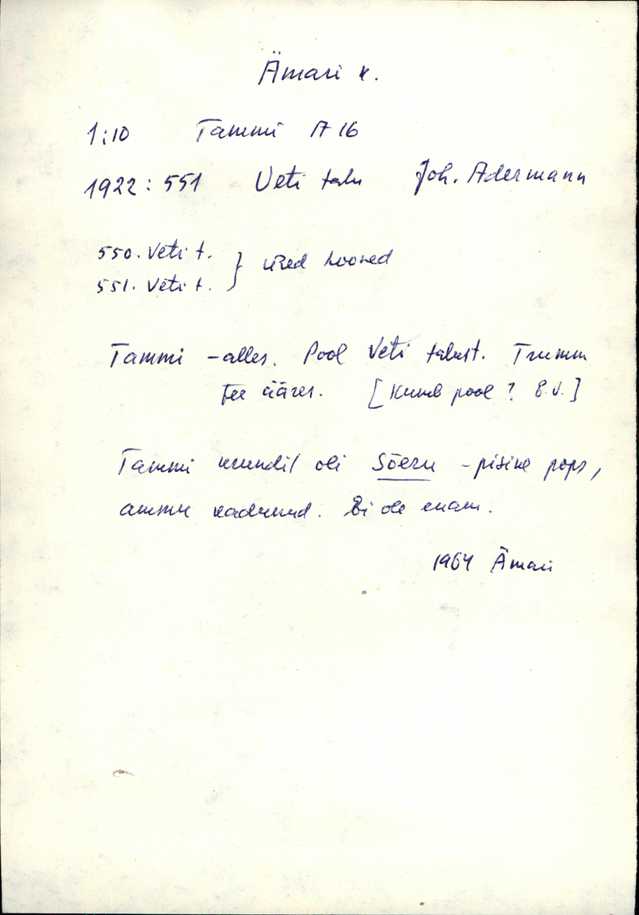 Ämari k.
1:10 Tammi A 16
1922: 551 Veti talu Joh. Adermann
550. Veti t. } ühed hooned
551. Veti t. }
Tammi - alles. Pool Veti talust. Trumm
tee ääres. [Kumb pool? E.V.]
Tammi krundil oli Sõeru - pisine pops,
ammu kadunud. Ei ole enam.
1964 Ämari